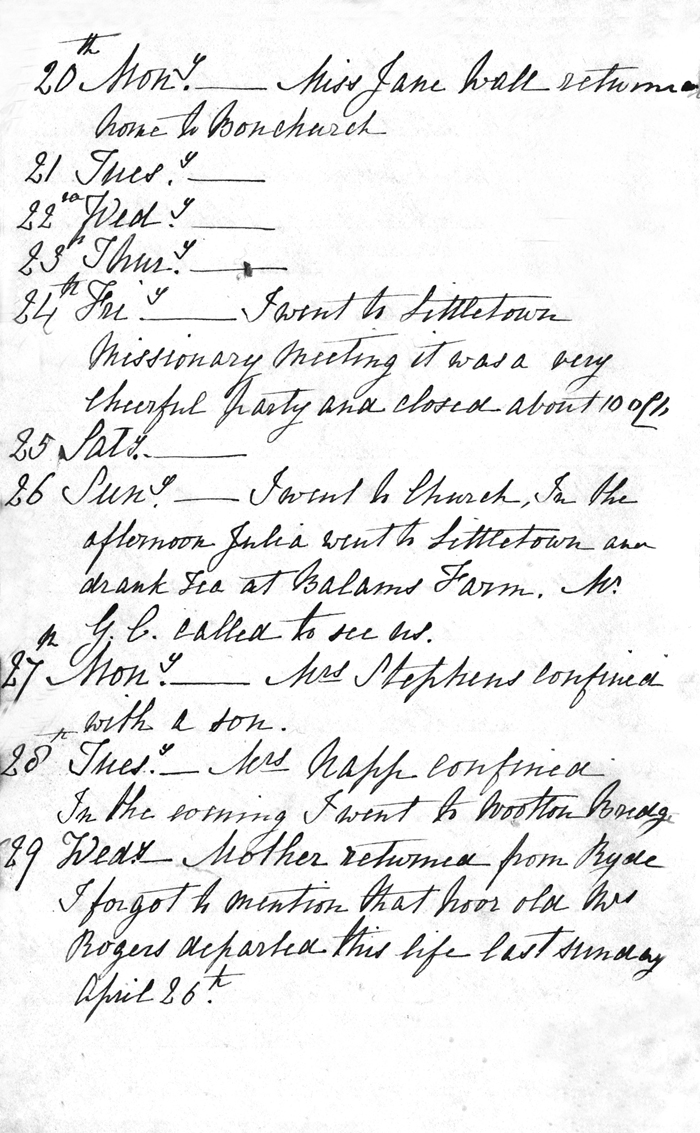 20th Mony. — Miss Jane Wall returned
home to Bonchurch
21 Tues.y —
22nd Wed.y —
23rd Thur.y —
24th Fri.y — I went to Littletown
Missionary Meeting it was a very
cheerful party and closed about 10 o'Ck
25 Saty. —
26 Suny. — I went to Church, In the
afternoon Julia went to Littletown and
drank Tea at Balams Farm. Mr
G. C. called to see us.
27th Mony. — Mrs Stephens confined
with a son.
28th Tues.y — Mrs confined
In the evening I went to Wootton Bridge
29 Wedy — Mother returned from Ryde
I forgot to mention that poor old Mrs
Rogers departed this life last sunday
April 26th.